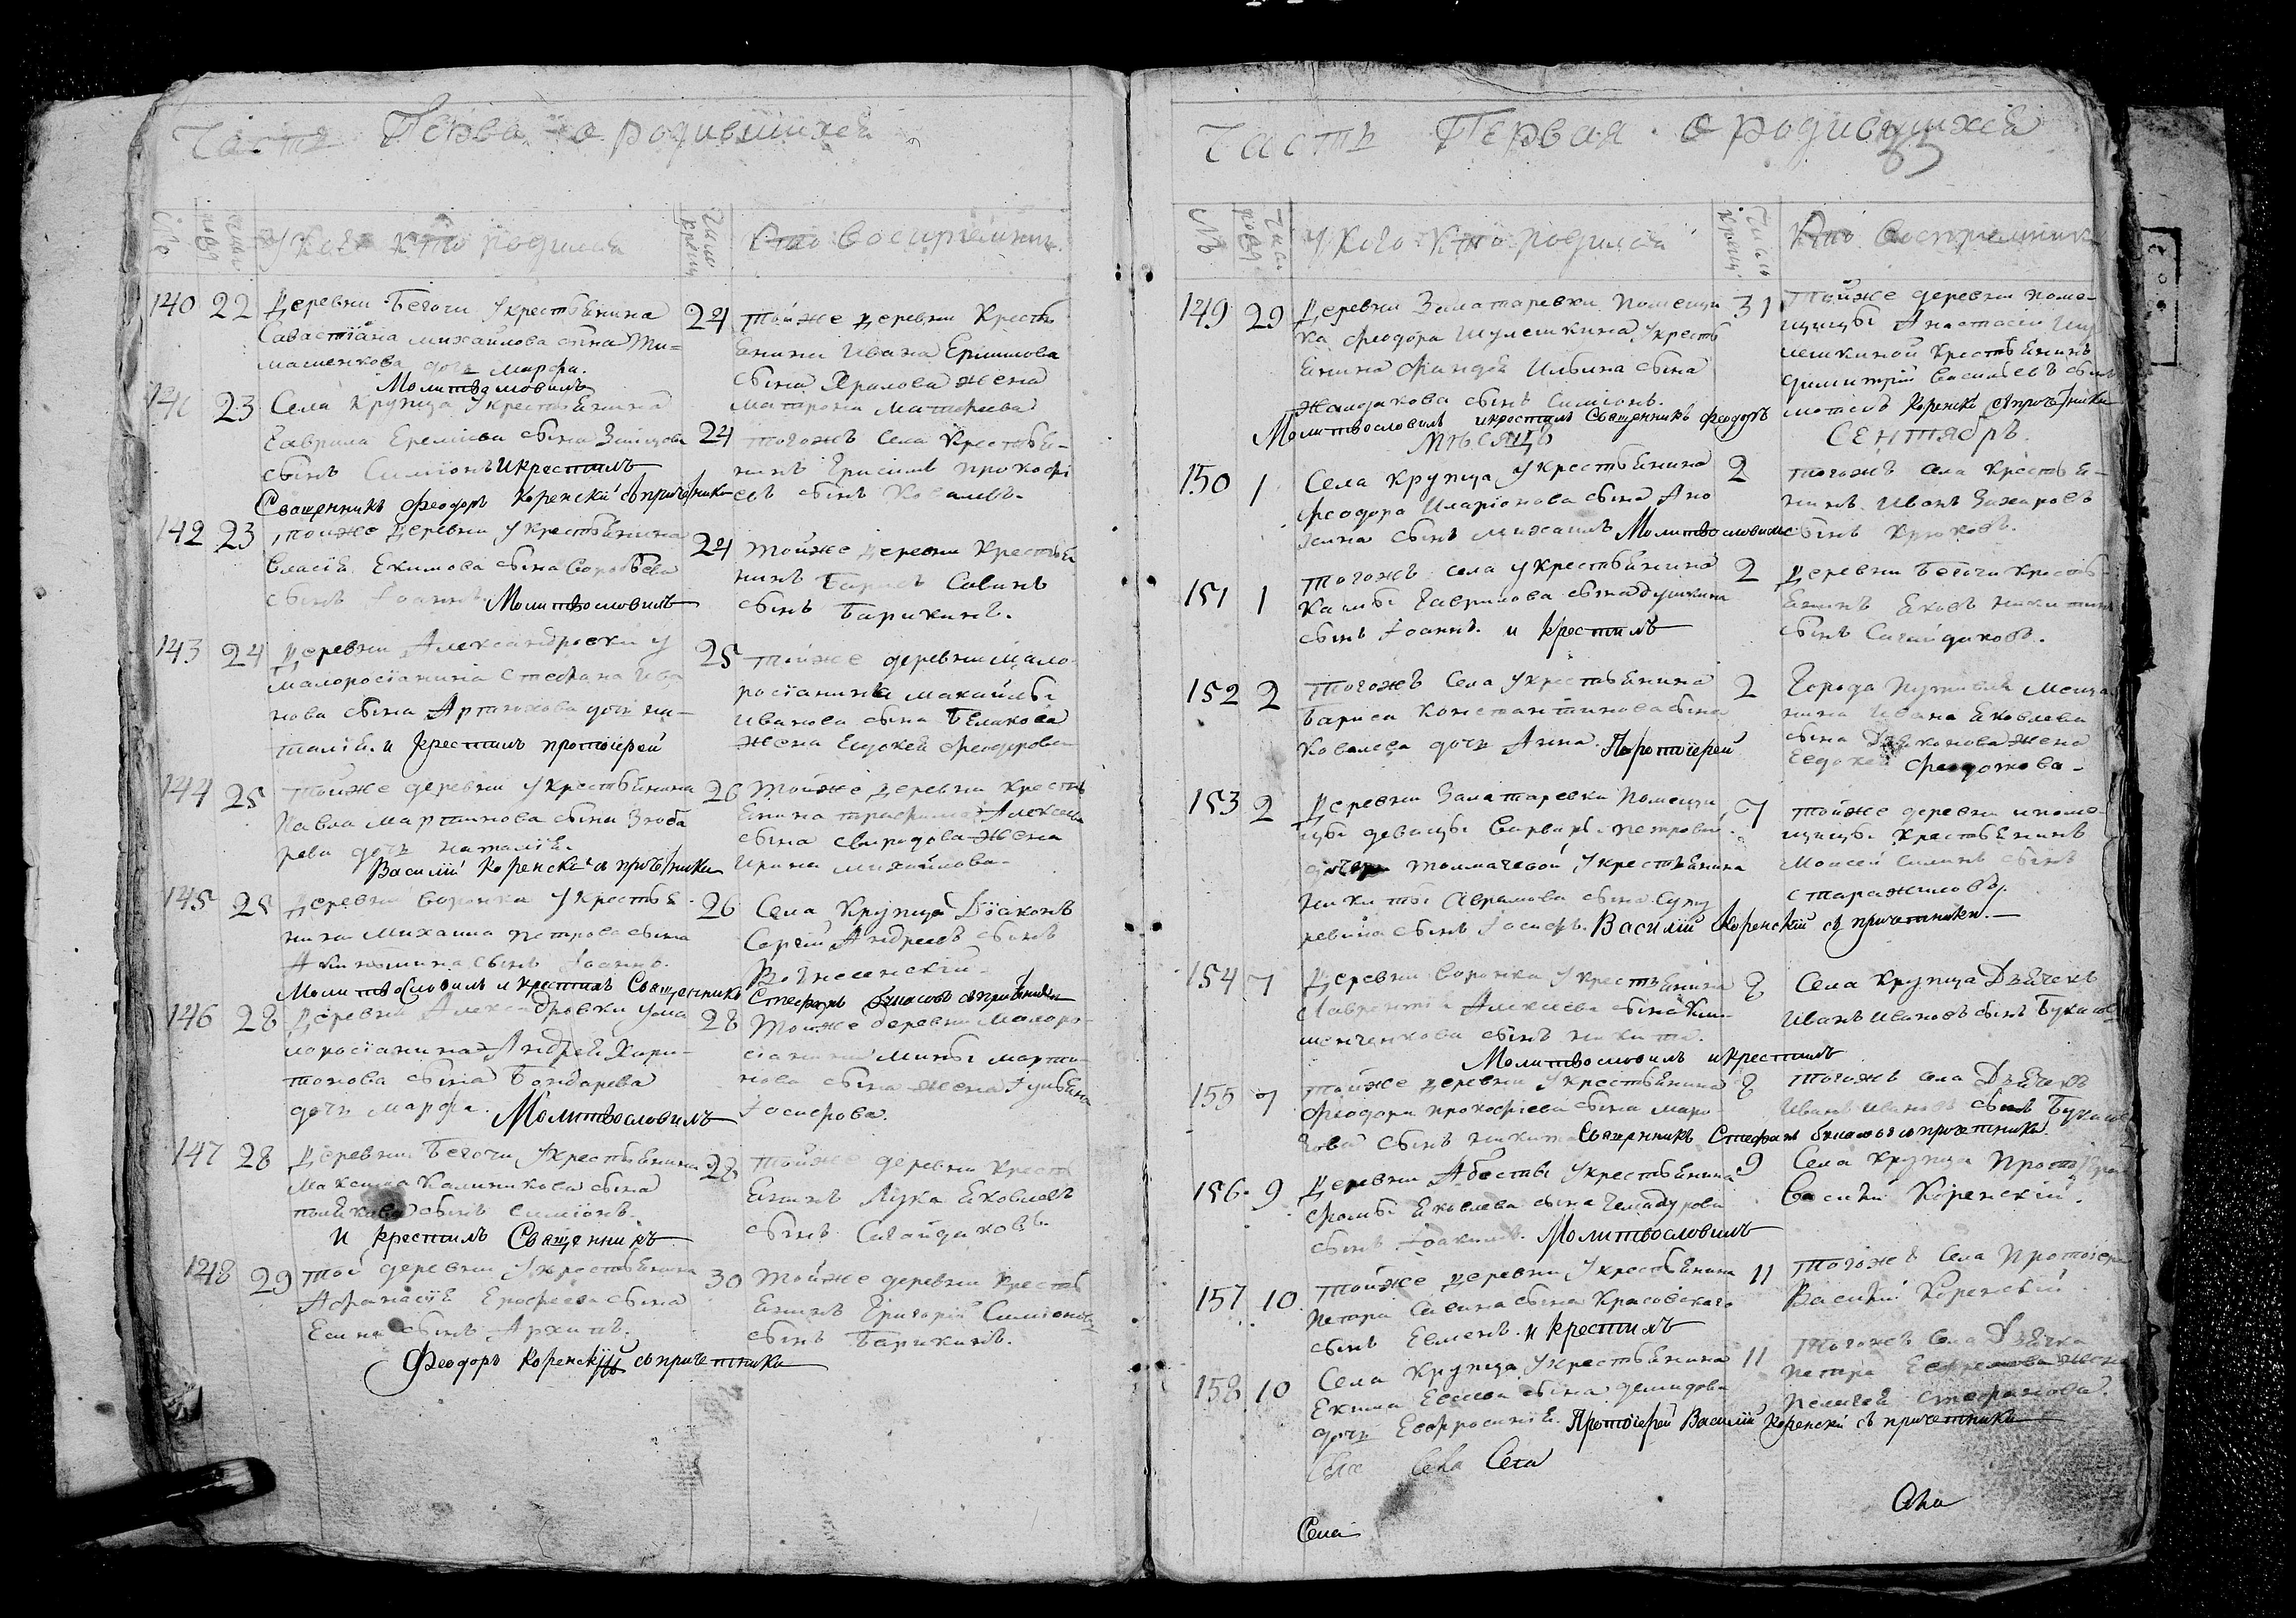 Часть Перва о родившихся
№
число рожд
У кого кто родился
Число крещ
Кто восприемники
140 22 Деревни Бегочи у крестьянина
Савастіана михайлова сына Ти-
машенкова дочь марфа.
Молитвословилъ
24 тойже деревни Кресть
янина Ивана Ермилова
сына Яралова жена
матрона матфеева
141 23 Села Крупца у крестьянина
Гаврила Еремѣева сына Зайцева
сынъ Симіонъ И крестилъ
Священникъ Феодоръ Коренскій съ причетники
24 тогожъ Села Крестья-
нинъ Герасимъ прокофі
евъ сынъ Ковалевъ.
142 23 тойже деревни у крестьянина
Власія Екимова сына Воробьева
сынъ Іоаннъ. Молитвословилъ
24 тойже деревни Крестья
нинъ Барисъ Савинъ
сынъ Барикинъ.
143 24 Деревни Александровки у
малоросіанина Стефана Ива
нова сына Артюхова дочь на-
талія. и крестилъ протоіерей
25 тойже деревни мало-
росіанина михайлы
Иванова сына Белакова
жена Евдокея феодорова
144 25 тойже деревни у крестьянина
Павла мартинова сына Зноба
рева дочь наталія.
Василій Коренскій съ причетники
26 тойже деревни кресть
янина трафима Алексеева
сына свиридова жена
Ирина михайлова.
145 25 деревни Воронка у крестья
нина Михаила петрова сына
сынъ Іоаннъ.
Молитвословилъ и крестилъ Священникъ Стефанъ съ причетники
26 Села Крупца Діаконъ
Сергій Андреевъ сынъ
Вознесенскій.
146 28 Деревни Александровки у ма
лоросіанина Андрея Хари-
тонова сына Бондарева
дочь марфа. Молитвословилъ
28 тойже деревни малоро-
сіанина Мины марти-
нова сына жена Іуліана
Іосифова.
147 28 Деревни Бегочи у крестьянина
Максима Калиникова сына
сынъ симіонъ.
и крестилъ Священникъ
28 тойже деревни кресть
янинъ Лука Яковлевъ
сынъ Сагайдаковъ.
148 29 той деревни у крестьянина
Афанасія Ерофеева сына
Есина сынъ Архипъ.
Феодоръ Коренскій съ причетники
30 тойже деревни кресть
янинъ Григорій Симіоновъ
сынъ Барикинъ.
Часть Первая о родившихся
№
Числ рожд
У кого кто родился
Число крещ
Кто восприемники
149 29 Деревни Залатаревки помещи
ка феодора Шулешкина у кресть
янина Ильина сына
Жалудкова сынъ Симіонъ.
Молитвословилъ и крестилъ Священникъ Феодоръ
31 тойже деревни поме-
щицы Анастасіи Шу
лешкиной крестьянинъ
димитрій Васильевъ сынъ
Коренскій съ причетники
Мѣсяцъ Сентябрь.
150 1 Села Крупца у крестьянина
феодора Иларіонова сына Ано
хина сынъ михаилъ Молитвословилъ
2 тогожъ села крестья-
нинъ Иванъ Захаровъ
сынъ Крюковъ.
151 1 тогожъ села у крестьянина
Калины Гаврилова сына душкина
сынъ Іоаннъ. и крестилъ
2 деревни Бегочи кресть-
янинъ Яковъ никитинъ
сынъ Сагайдаковъ.
152 2 тогожъ Села у крестьянина
Бариса Константинова сына
Ковалева дочь Анна. Протоіерей
2 Города Путивля меща-
нина Ивана Яковлева
сына Дьяконова жена
Евдокея
153 2 Деревни Залатаревки помещи
цы девицы Варвары петровой
дочери толмачевой у крестьянина
никиты Аврамова сына
сынъ Іосифъ. Василій Коренскій съ причетники.
7 тойже деревни ипоме-
щицы крестьянинъ
Моисей Силинъ сынъ
старажиловъ.
154 7 Деревни Воронка у крестьянина
Лаврентія Алексеева сына Тим-
шенкова сынъ никита.
Молитвословилъ и крестилъ
8 Села Крупца Дьячекъ
Иванъ Ивановъ сынъ
155 7 тойже деревни у крестьянина
феодора прокофіева сына
сынъ никита Священникъ Стефанъ съ причетники.
8 тогожъ села Дьячекъ
Иванъ Ивановъ сынъ
156 9 Деревни у крестьянина
фомы Яковлева сына Чемадурова
сынъ Іоакимъ. Молитвословилъ
9 Села Крупца Протоіерей
Василій Коренскій.
157 10 тойже деревни у крестьянина
Петра Савина сына Красовскаго
сынъ Евменъ. и крестилъ
11 тогожъ Села Протоіерей
Василій Коренскій
158 10 Села Крупца у крестьянина
Екима Евсеева сына демидова
дочь Евфросинія. Протоіерей Василій Коренскій съ причетники
11 тогожъ Села Дьячка
петра Ефремова жена
Пелагея стефанова.
Села Села
Села